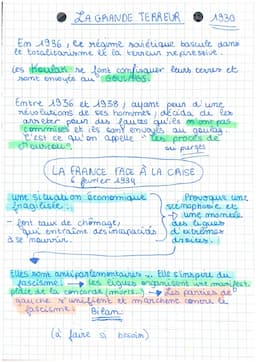 LA GRANDE TERREUR 1930
En 1936, le régime soviétique bascule dans
le totalitarisme et la terreur répressive.
Les Koulaks se font confisquer leurs terres et
sont envoyés au GOULAGS.
Entre 1936 et 1938, ayant peur d'une
révolutions de ses hommes, décida de les
arrêter pour des fautes qu'ils n'ont pas
commises et ils sont envoyés au goulag
C'est ce qu'on appelle "les procès de
Moscou".
ou purges
LA FRANCE FACE À LA CRISE
6 février 1934
une situation économique
fragilisée.
- fort taux de chômage,
qui entraîne des incapacités
à se nourrir.
Provoque une
xénophobie et
→ une montée
des ligues
d'extrêmes
droites.
Elles sont antiparlementaires... Elle s'inspire du
fascisme. → les ligues organisent une manifest.
place de la concorde (morts.) → Les parties de
gauche s'unifient et marchent contre le
fascisme.
Bilan
(à faire si besoin)